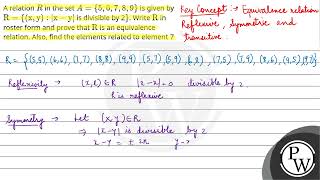 A relation R in the set A = {5, 6, 7, 8, 9} is given by
R = {(x, y) : |x − y| is divisible by 2}. Write R in
roster form and prove that R is an equivalence
relation. Also, find the elements related to element 7
Key Concept :- Equivalence relation
Reflexive, Symmetric and
transitive.
R = {(5,5), (6,6), (7,7), (8,8), (9,9), (5,7), (5,9), (6,8), (7,5), (7,9), (8,6), (9,5), (9,7)}
Reflexivity :- (x,x) ∈ R |x-x| = 0 divisible by 2
R is reflexive
Symmetry :- Let (x,y) ∈ R
⇒ |x-y| is divisible by 2
x-y = ± 2k y-
PW